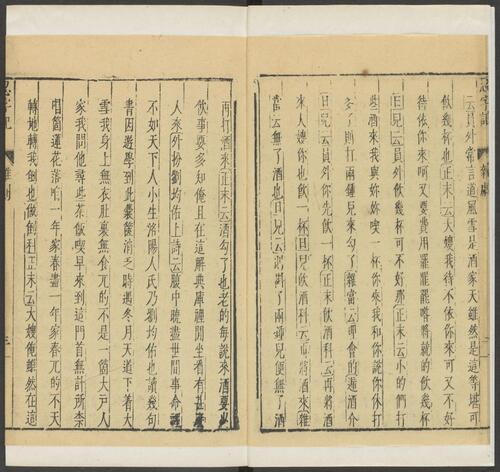 忍字記 雜劇
云員外常言道風雪是酒家天雖然是這等堪可
飲幾杯也正末云大嫂我待不依你來可又不好
待依你來呵又要費用罷罷罷喒將就的飲幾杯
旦兒云員外飲幾杯可不好那正末云小的們打
些酒來我與妳妳喫一杯你來我和你說你休打
多了則打兩鍾兒來勾了雜當云理會的
旦兒云員外你先飲一杯正末飲酒科云再將
來大嫂你也飲一杯旦兒飲酒科云再將酒來雜
當云無了酒也旦兒云兩鍾兒便無了酒
再打酒來正末云酒勾了也老的每說來酒要少
飲事要多知俺且在這解典庫裡閒坐看有甚麼
人來外扮劉均佑上詩云腹中曉盡世間事命裡
不如天下人小生洛陽人氏乃劉均佑也讀幾句
書因遊學到此囊篋消乏時遇冬月天道下著大
雪我身上無衣肚裏無食兀的不是一箇大戶人
家我問他尋些茶飯喫早來到這門首無計所柰
唱箇蓮花落咱一年家春盡一年家春兀的不天
轉地轉我倒也做倒科正末云大嫂俺雖然在這
忍字記 雜劇 三